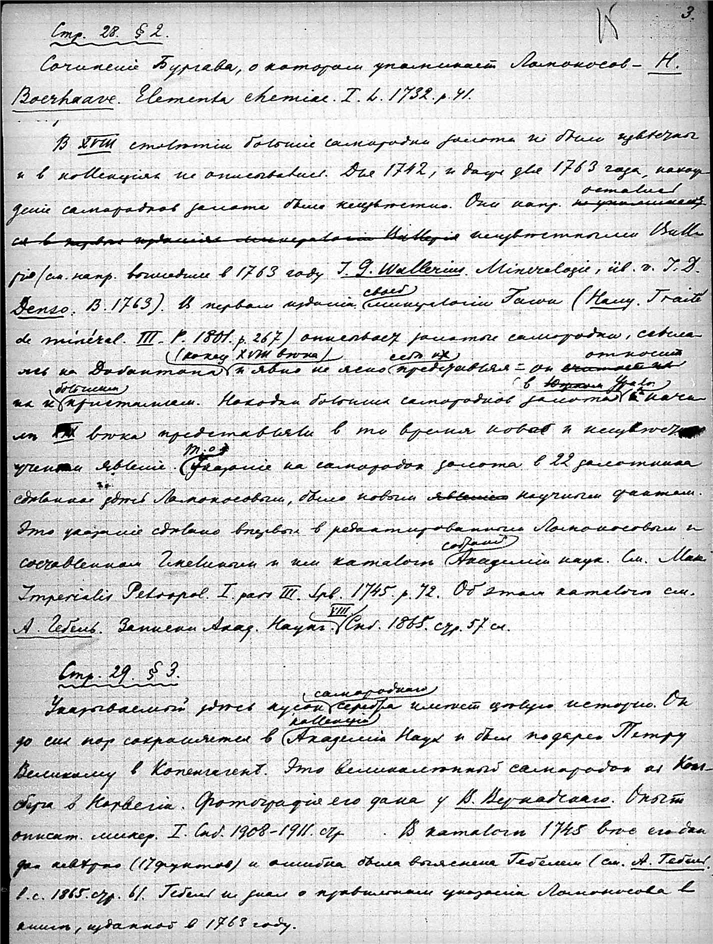 3.
Стр. 28. § 2.
Сочиненіе Бургава, о котором упоминает Ломоносов – H.
Boerhaave. Elementa chemiae. I. L. 1732. p. 41.
В XVIII столѣтіи большіе самородки золота не были извѣстны
и в коллекціях не описывались. Для 1742, и даже для 1763 года, нахож
деніе самородков золота было неизвѣстно. Они напр. остались
неизвѣстными Валле
рію (см. напр. вышедшее в 1763 году J. G. Wallerius. Mineralogie, üb. v. J. D.
Denso. B. 1763). В первом изданіи своей минералогіи Гаюи (Hauy. Traité
de minéral. III. P. 1801. p. 267) описывает золотые самородки, ссыла
ясь на Добантона (конец XVIII вѣка) и явно не ясно себѣ их представляя – он относит
их к большим кристаллам. Находки больших самородков золота в нача
лѣ вѣка представляли в то время новое и неизвѣстное
ученым явленіе. указаніе на самородок золота в 22 золотника
сдѣланное здѣсь Ломоносовым, было новым научным фактом.
Это указаніе сдѣлано впервые в редактированном Ломоносовым и
составленном Гмелиным и им каталогѣ собраній Академіи наук. См. Mus.
Imperialis Petropol. I. pars III. Spb. 1745. p. 72. Об этом каталогѣ см.
А. Гебель. Записки Акад. Наук. VIII Спб. 1865. стр. 57 сл.
Стр. 29. § 3.
Указываемый здѣсь кусок самороднаго серебра имѣет цѣлую исторію. Он
до сих пор сохраняется в коллекціи Академіи Наук и был подарен Петру
Великому в Копенгагенѣ. Это великолѣпный самородок из Конг
сберга в Норвегіи. Фотографія его дана у В. Вернадскаго. Опыт
описат. минер. I. Спб. 1908–1911. стр . В каталогѣ 1745 вѣс его дан
(17 фунтов) и ошибка была выяснена Гебелем (см. А. Гебель.
l. c. 1865. стр. 61. Гебель не знал о правильном указаніи Ломоносова в
книгѣ, изданной в 1763 году.